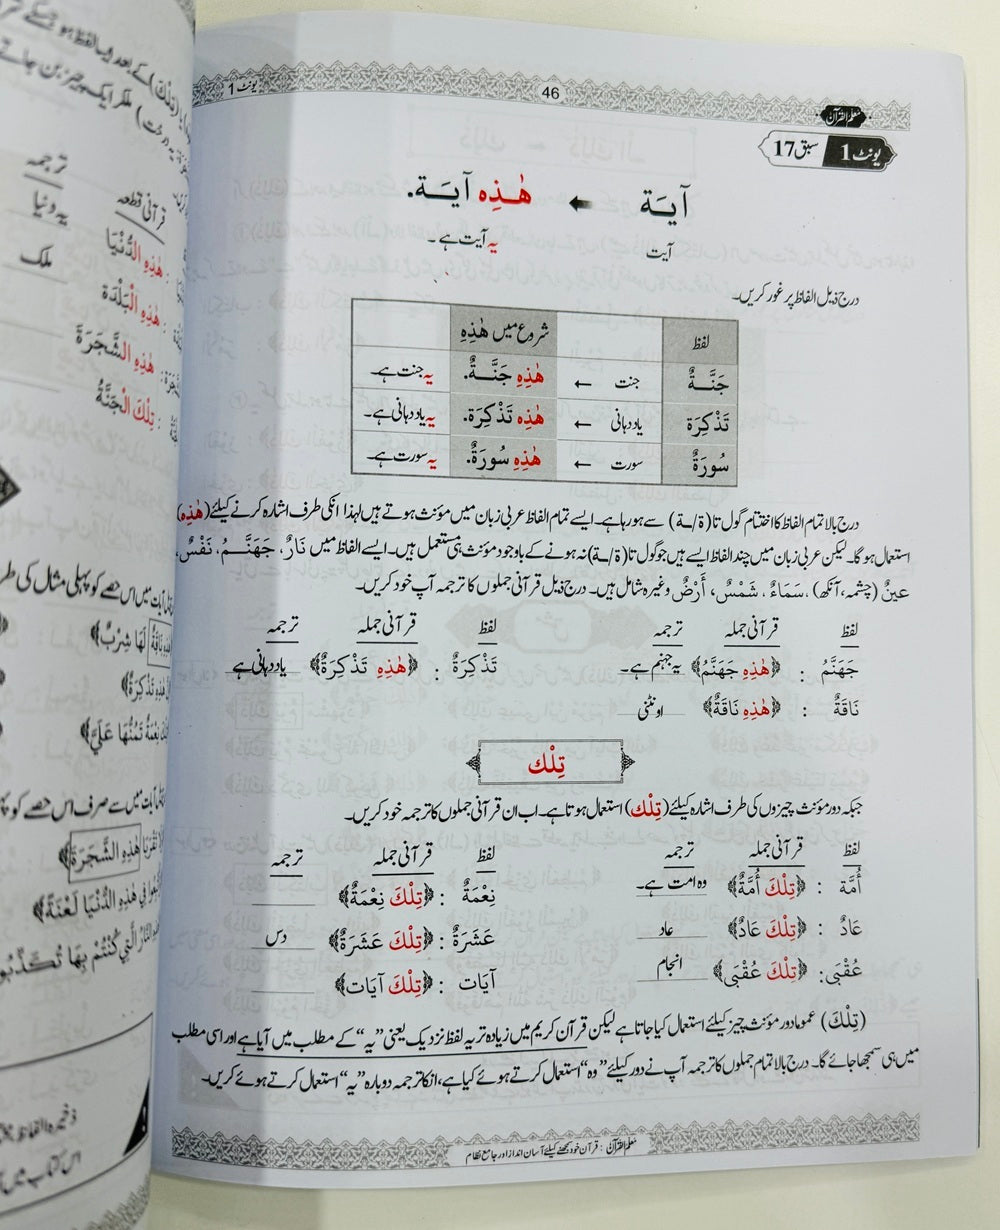 یونٹ 1
46
معلم القرآن
یونٹ 1 سبق 17
آیَـة ← هٰـذِه آیَـة.
آیت یہ آیت ہے۔
درج ذیل الفاظ پر غور کریں۔
لفظ شروع میں هٰذِهِ
جَنَّـةٌ جنت ← هٰذِهِ جَنَّـةٌ. یہ جنت ہے۔
تَذْكِرَة یاد دہانی ← هٰذِه تَذْكِرَة. یہ یاد دہانی ہے۔
سُورَةٌ سورت ← هٰذِهِ سُورَةٌ. یہ سورت ہے۔
درج بالا تمام الفاظ کا اختتام گول تا (ة/ـة) سے ہو رہا ہے۔ ایسے تمام الفاظ عربی زبان میں مؤنث ہوتے ہیں لہذا انکی طرف اشارہ کرنے کیلئے (هٰذِه)
استعمال ہو گا۔ لیکن عربی زبان میں چند الفاظ ایسے ہیں جو گول تا (ة/ـة) نہ ہونے کے باوجود مؤنث ہی مستعمل ہیں۔ ایسے الفاظ میں نَارٌ، جَهَنَّـمُ، نَفْسٌ،
عینٌ (چشمہ، آنکھ)، سَمَاءٌ، شَمْسٌ، أَرْضٌ وغیرہ شامل ہیں۔ درج ذیل قرآنی جملوں کا ترجمہ آپ خود کریں۔
لفظ قرآنی جملہ ترجمہ لفظ قرآنی جملہ ترجمہ
جَهَنَّمُ : ﴿هٰذِهِ جَهَنَّمُ﴾ یہ جہنم ہے۔ تَذْكِرَةٌ : ﴿هٰذِهِ تَذْكِرَةٌ﴾ یاد دہانی ہے
نَاقَةٌ : ﴿هٰذِهِ نَاقَةٌ﴾ اونٹنی
تِلْك
جبکہ دور مؤنث چیزوں کی طرف اشارہ کیلئے (تِلْك) استعمال ہوتا ہے۔ اب ان قرآنی جملوں کا ترجمہ خود کریں۔
لفظ قرآنی جملہ ترجمہ لفظ قرآنی جملہ ترجمہ
أُمَّة : ﴿تِلْكَ أُمَّةٌ﴾ وہ امت ہے۔ نِعْمَةٌ : ﴿تِلْكَ نِعْمَةٌ﴾
عَادٌ : ﴿تِلْكَ عَادٌ﴾ عاد عَشَرَةٌ : ﴿تِلْكَ عَشَرَةٌ﴾ دس
عُقْبَى : ﴿تِلْكَ عُقْبَى﴾ انجام آیَات : ﴿تِلْكَ آیَات﴾
(تِلْكَ) عموما دور مؤنث چیز کیلئے استعمال کیا جاتا ہے لیکن قرآن کریم میں زیادہ تر یہ لفظ نزدیک یعنی ”یہ“ کے مطلب میں آیا ہے اور اسی مطلب
میں ہی سمجھا جائے گا۔ درج بالا تمام جملوں کا ترجمہ آپ نے دور کیلئے ”وہ“ استعمال کرتے ہوئے کیا ہے، انکا ترجمہ دوبارہ ”یہ“ استعمال کرتے ہوئے کریں۔
معلم القرآن : قرآن خود سمجھنے کیلئے آسان انداز اور جامع نظام
ترجمہ
قرآنی قطعہ
یہ دنیا
هٰذِهِ الدُّنْیَا
ملک
هٰذِهِ الْبَلْدَة
هٰذِهِ الشَّجَرَةَ
تِلْكَ الْجَنَّةُ
لَهَا شِرْبٌ﴾
هٰذِهِ تَذْكِرَةٌ﴾
نِعْمَةٌ تَمُنُّهَا عَلَيَّ﴾
هٰذِهِ الشَّجَرَةَ﴾
فِي هٰذِهِ الدُّنْيَا لَعْنَةً﴾
النَّارُ الَّتِي كُنْتُمْ بِهَا تُكَذِّبُونَ
ذخیرہ الفاظ